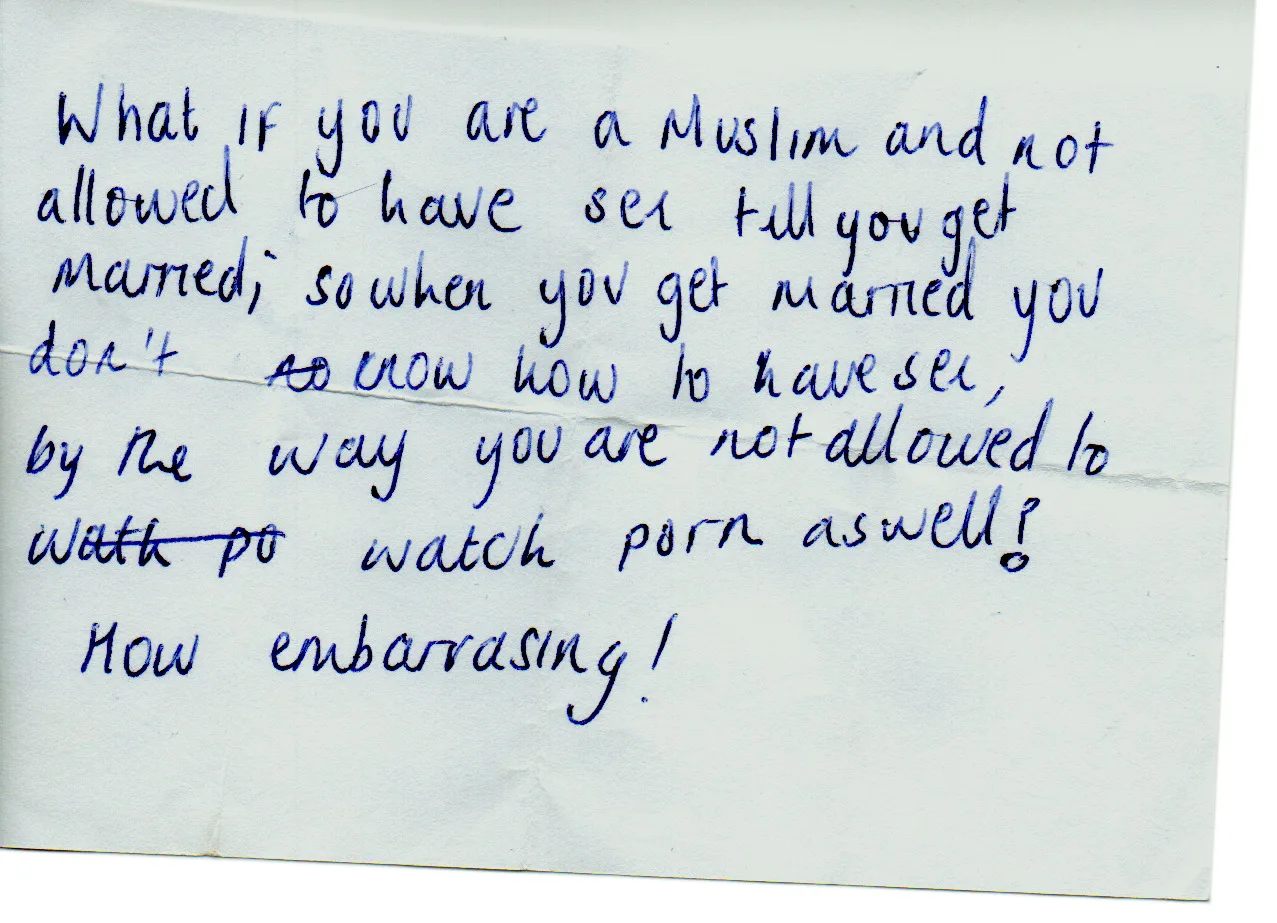 What if you are a Muslim and not
allowed to have sex till you get
married; so when you get married you
don't no know how to have sex,
by the way you are not allowed to
wath po watch porn aswell!
How embarrasing!